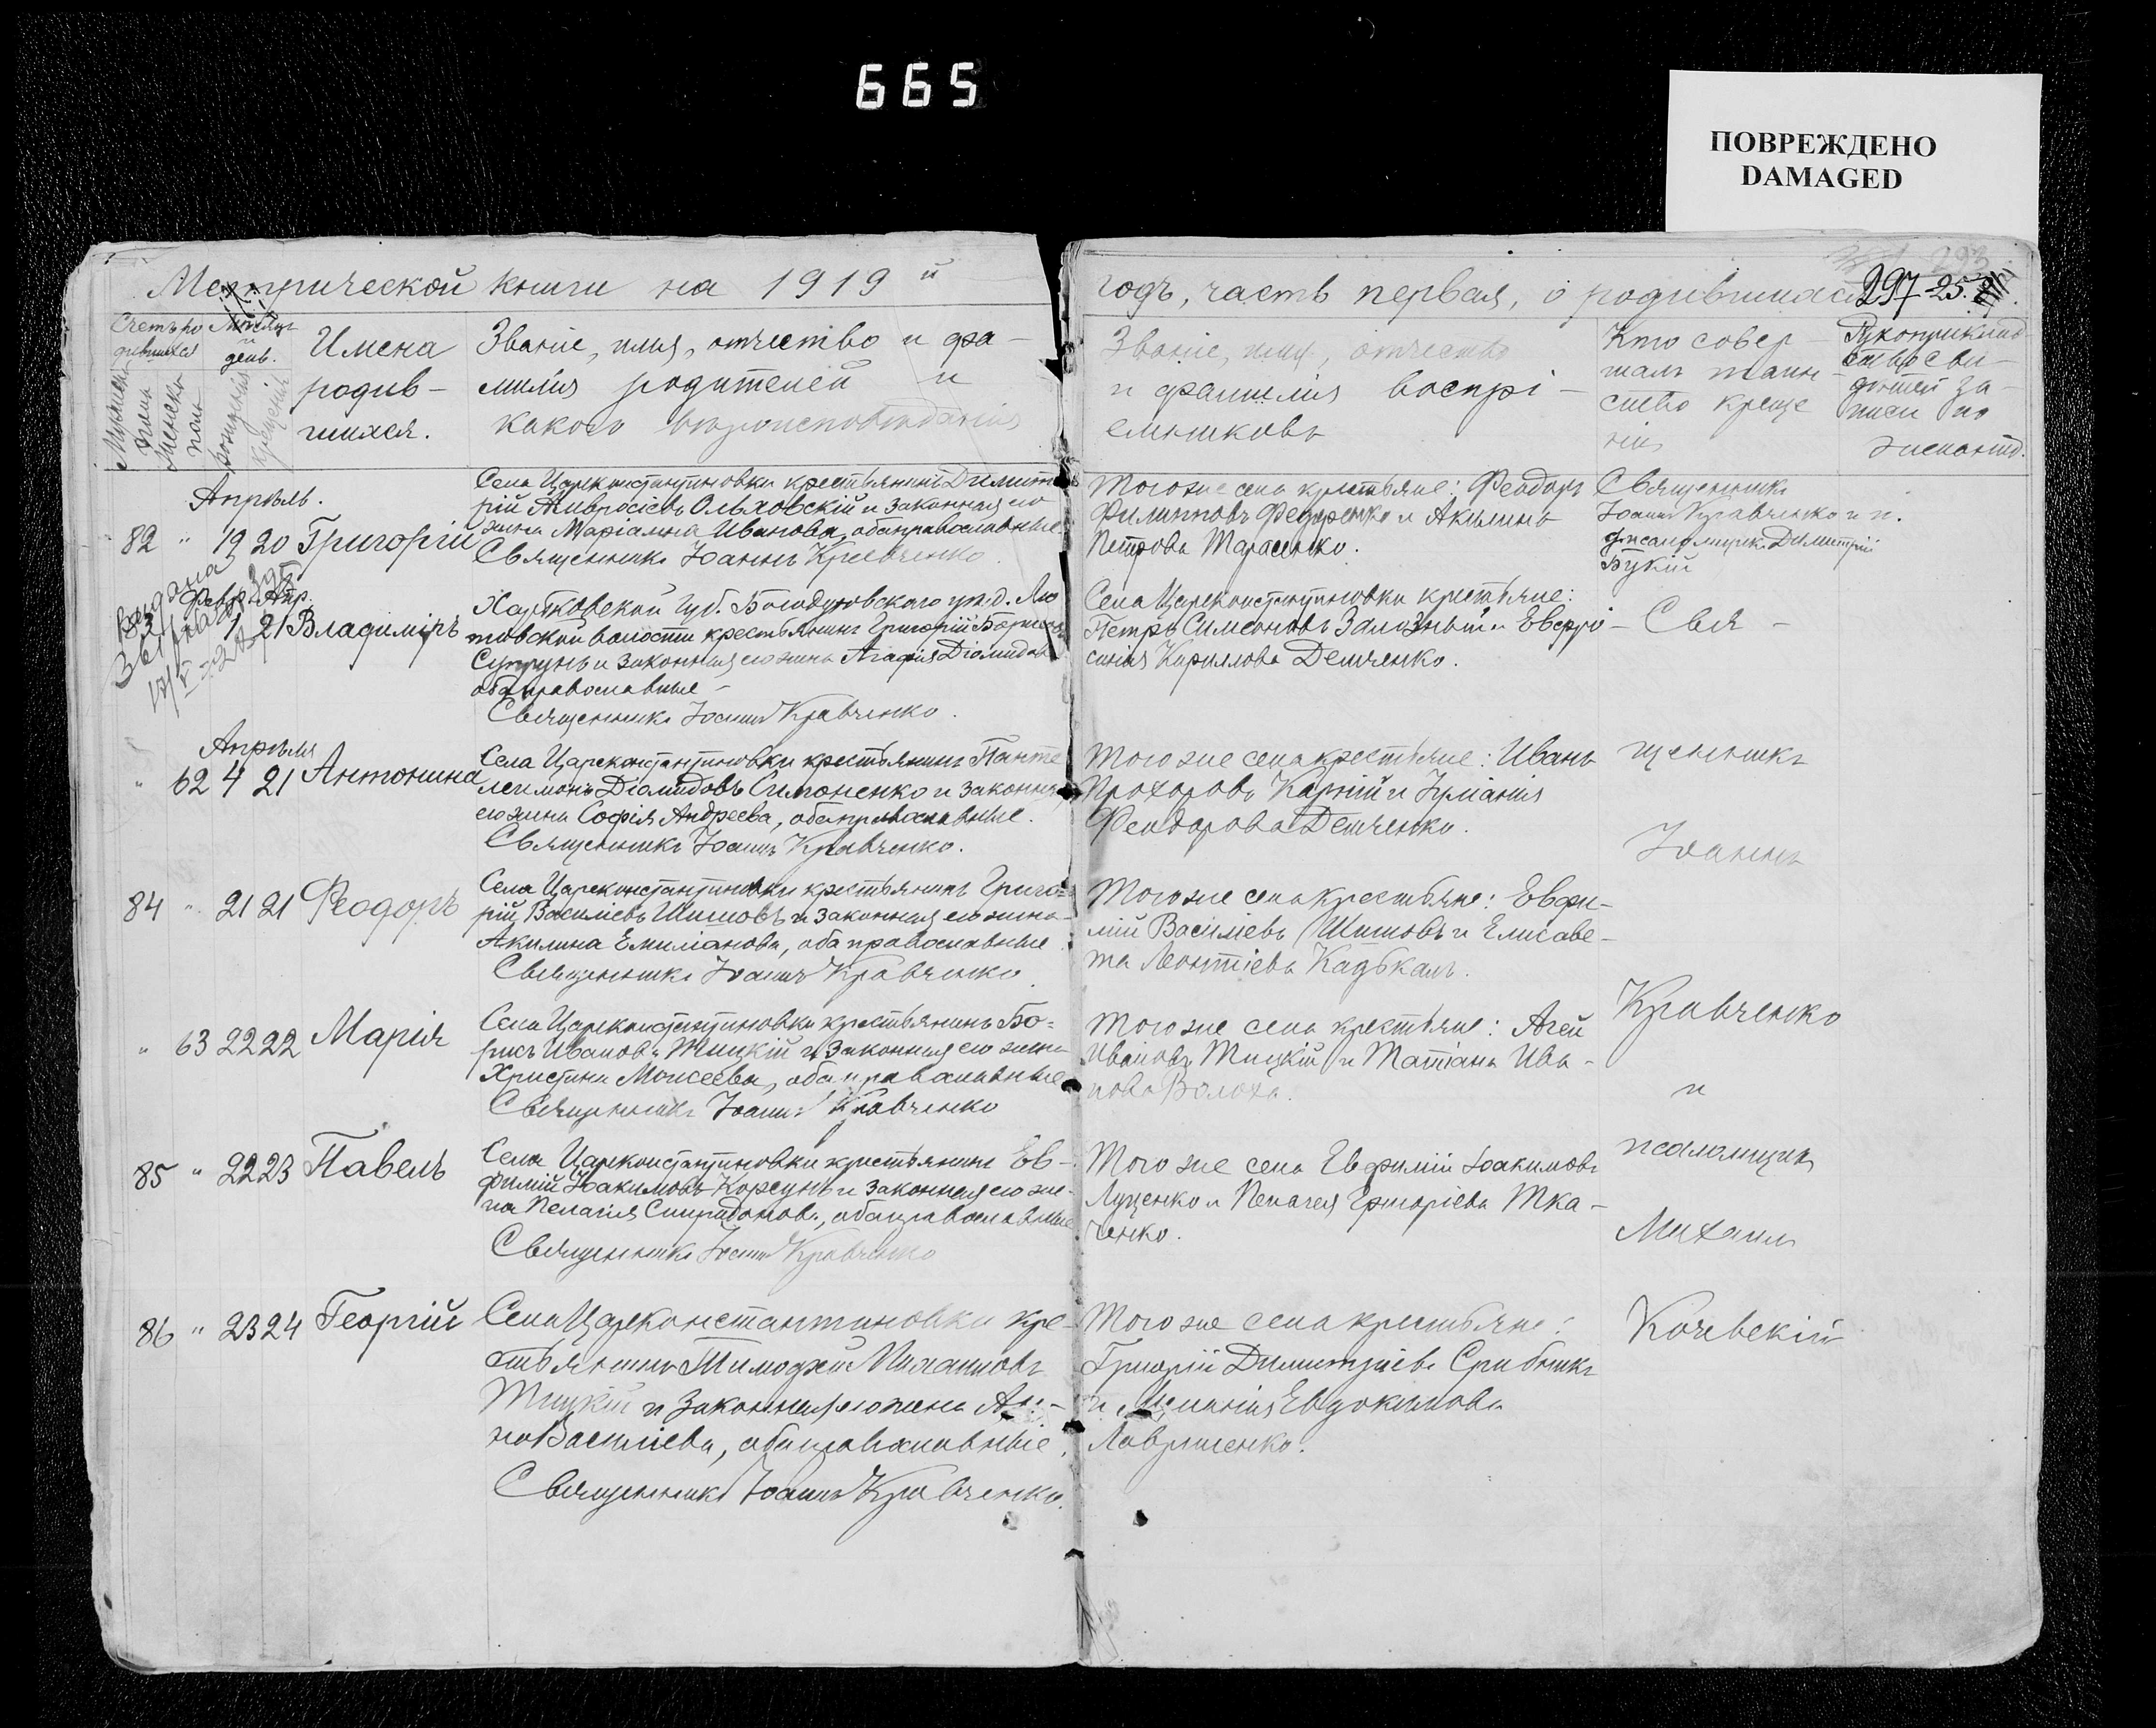 665
ПОВРЕЖДЕНО
DAMAGED
Метрической книги на 1919 й
годъ, часть первая, о родившихся
297 25.
Счетъ ро
дившихся
Мѣсяцъ
и
день.
Мужеска
пола
Женска
пола
Рожденія
Крещенія
Имена
родив-
шихся.
Званіе, имя, отчество и фа-
милія родителей и
какого вѣроисповѣданія
Званіе, имя, отчество
и фамилія воспрі-
емниковъ
Кто совер-
шалъ таин-
ство креще
нія
Рукоприклад
ство сви-
дѣтелей за-
писи по
желанію.
Апрѣль.
82 " 19 20 Григорій
Села Цареконстантиновки крестьянинъ Димит
рій Амвросіевъ Ольховскій и законная его
жена Маріамна Иванова, оба православные.
Священникъ Іоаннъ Кравченко.
Того же села крестьяне: Феодоръ
Филипповъ Федоренко и Акилина
Петрова Тарасенко.
Священникъ
Іоаннъ Кравченко и и.
д. псаломщика Димитрій
Букій
Выдана
Февр. Апр.
83 " 1 21 Владиміръ
Харьковской губ. Богодуховскаго уѣзд. Лю
товской волости крестьянинъ Григорій Борисовъ
Супрунъ и законная его жена Агафія Діомидова
оба православные -
Священникъ Іоаннъ Кравченко.
Села Цареконстантиновки крестьяне:
Петръ Симеоновъ Зализный и Евфро-
синія Кириллова Демченко.
Свя -
Апрѣля
" 62 4 21 Антонина
Села Цареконстантиновки крестьянинъ Панте
леимонъ Діомидовъ Симоненко и законная
его жена Софія Андреева, оба православные.
Священникъ Іоаннъ Кравченко.
Того же села крестьяне: Иванъ
Прохоровъ Карпій и Іуліанія
Феодорова Демченко.
щенникъ
Іоаннъ
84 " 21 21 Феодоръ
Села Цареконстантиновки крестьянинъ Григо=
рій Василіевъ Шишовъ и законная его жена
Акилина Емиліанова, оба православные
Священникъ Іоаннъ Кравченко
Того же села крестьяне: Евфи-
мій Василіевъ Шишовъ и Елисаве-
та Леонтіева Кадькалъ.
" 63 22 22 Марія
Села Цареконстантиновки крестьянинъ Бо=
рисъ Ивановъ Тицкій и законная его жена
Христина Моисеева, оба православные
Священникъ Іоаннъ Кравченко
Того же села крестьяне: Агей
Ивановъ Тицкій и Татіана Ива-
нова Волоха.
Кравченко
и
85 " 22 23 Павелъ
Села Цареконстантиновки крестьянинъ Ев-
фимій Іоакимовъ Корсунъ и законная его же-
на Пелагія Спиридонова, оба православные
Священникъ Іоаннъ Кравченко
Того же села Евфимій Іоакимовъ
Луценко и Пелагея Григоріева Тка-
ченко.
псаломщикъ
Михаилъ
86 " 23 24 Георгій
Села Цареконстантиновки кре-
стьянинъ Тимофей Михаиловъ
Тицкій и законная его жена Ан-
на Василіева, оба православные.
Священникъ Іоаннъ Кравченко.
Того же села крестьяне:
Григорій Димитріевъ Срибникъ
и Евдокимова
Лавриненко.
Кочевскій